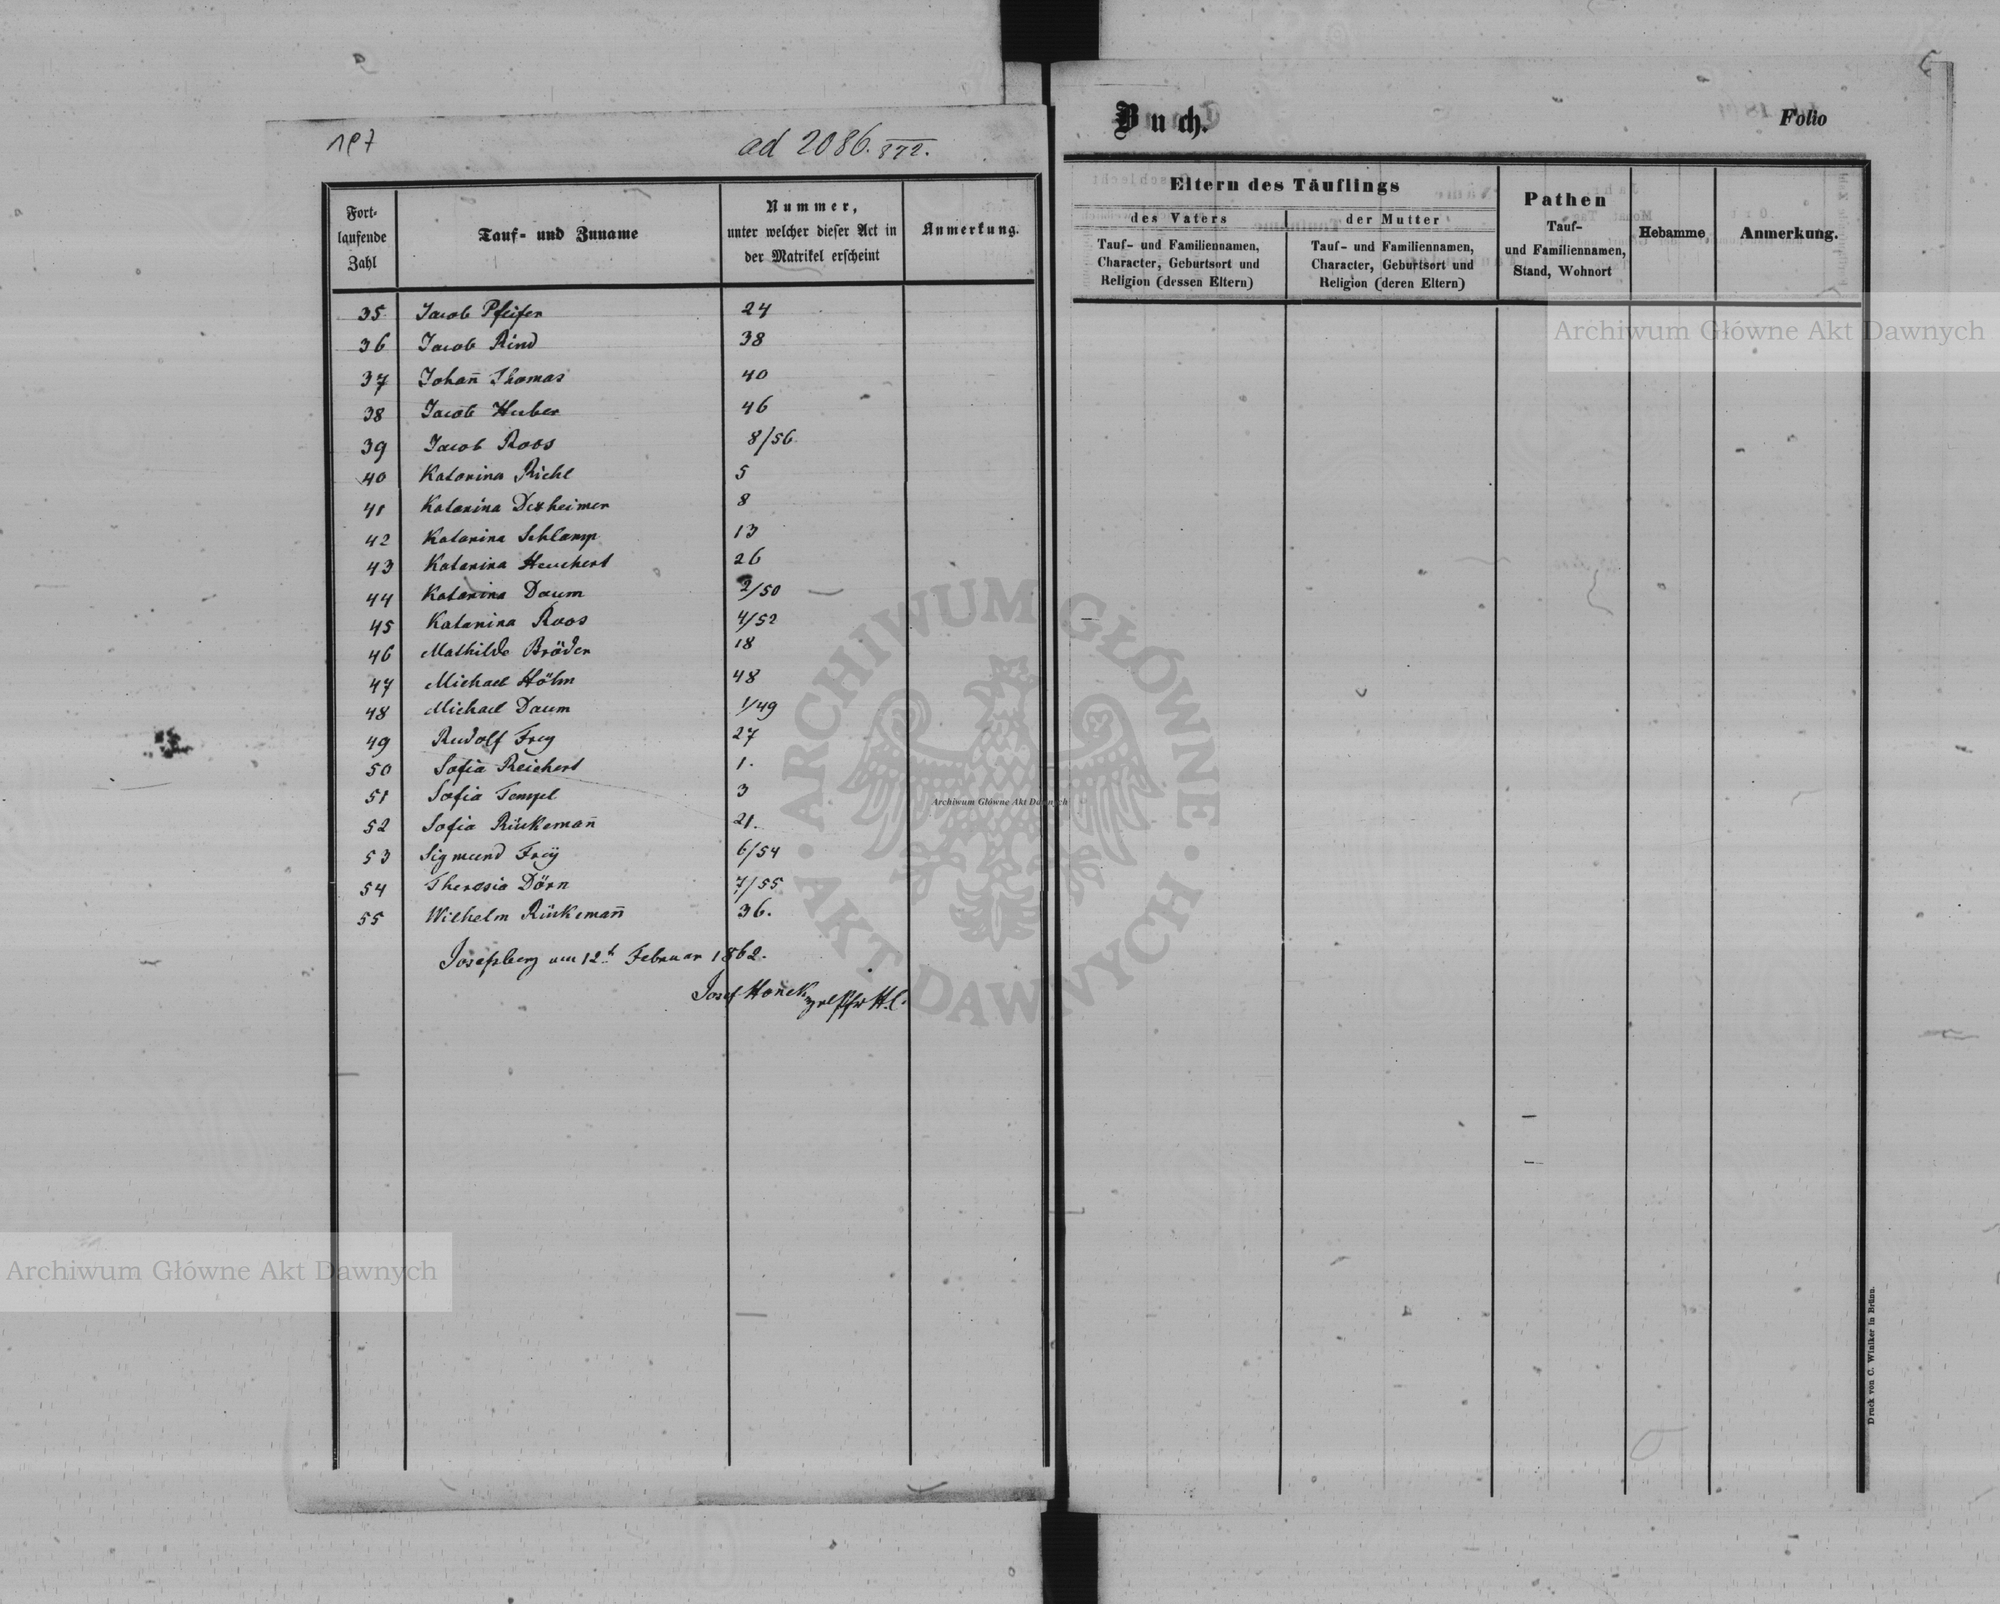 197
ad 2086.
Fort-
laufende
Zahl
Tauf- und Zuname
Nummer,
unter welcher dieser Act in
der Matrikel erscheint
Anmerkung.
35 Jacob Pfeifer 24
36 Jacob Rind 38
37 Johañ Thomas 40
38 Jacob Huber 46
39 Jacob Roos 8/56
40 Katarina Richl 5
41 Katarina Dexheimer 8
42 Katarina Schlamp 13
43 Katarina Heuchert 26
44 Katarina Daum 2/50
45 Katarina Roos 4/52
46 Mathilde Bröder 18
47 Michael Höhn 48
48 Michael Daum 1/49
49 Rudolf Frey 27
50 Sofia Reichert 1.
51 Sofia Tempel 3
52 Sofia Rükemañ 21.
53 Sigmund Freÿ 6/54
54 Theresia Dörn 7/55
55 Wilhelm Rükemañ 36.
Josefsberg am 12t Februar 1862.
Josef Hanek
Buch.
Folio
Eltern des Täuflings
des Vaters
Tauf- und Familiennamen,
Character, Geburtsort und
Religion (dessen Eltern)
der Mutter
Tauf- und Familiennamen,
Character, Geburtsort und
Religion (deren Eltern)
Pathen
Tauf-
und Familiennamen,
Stand, Wohnort
Hebamme
Anmerkung.
Druck von C. Winiker in Brünn.
Archiwum Główne Akt Dawnych
Archiwum Główne Akt Dawnych
Archiwum Główne Akt Dawnych
ARCHIWUM GŁÓWNE · AKT DAWNYCH ·